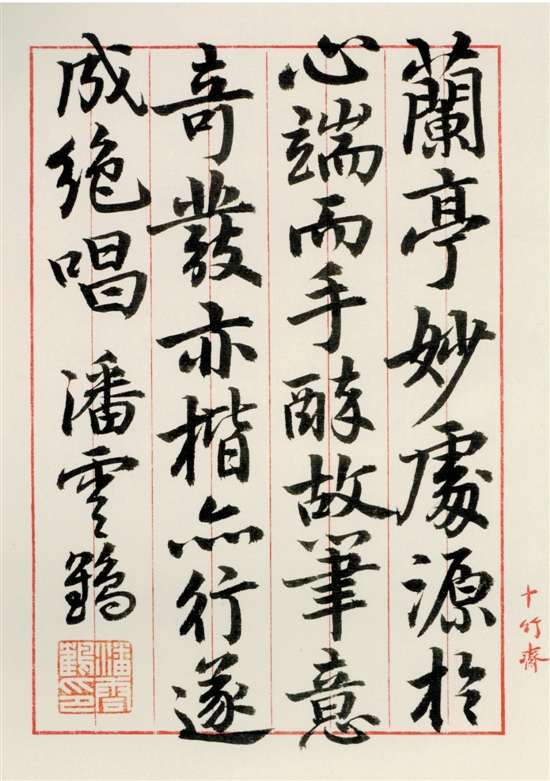 蘭亭妙處源於
心端而手醉故筆意
奇發亦楷亦行遂
成絶唱 潘雲鶴
潘雲鶴印
十竹齋